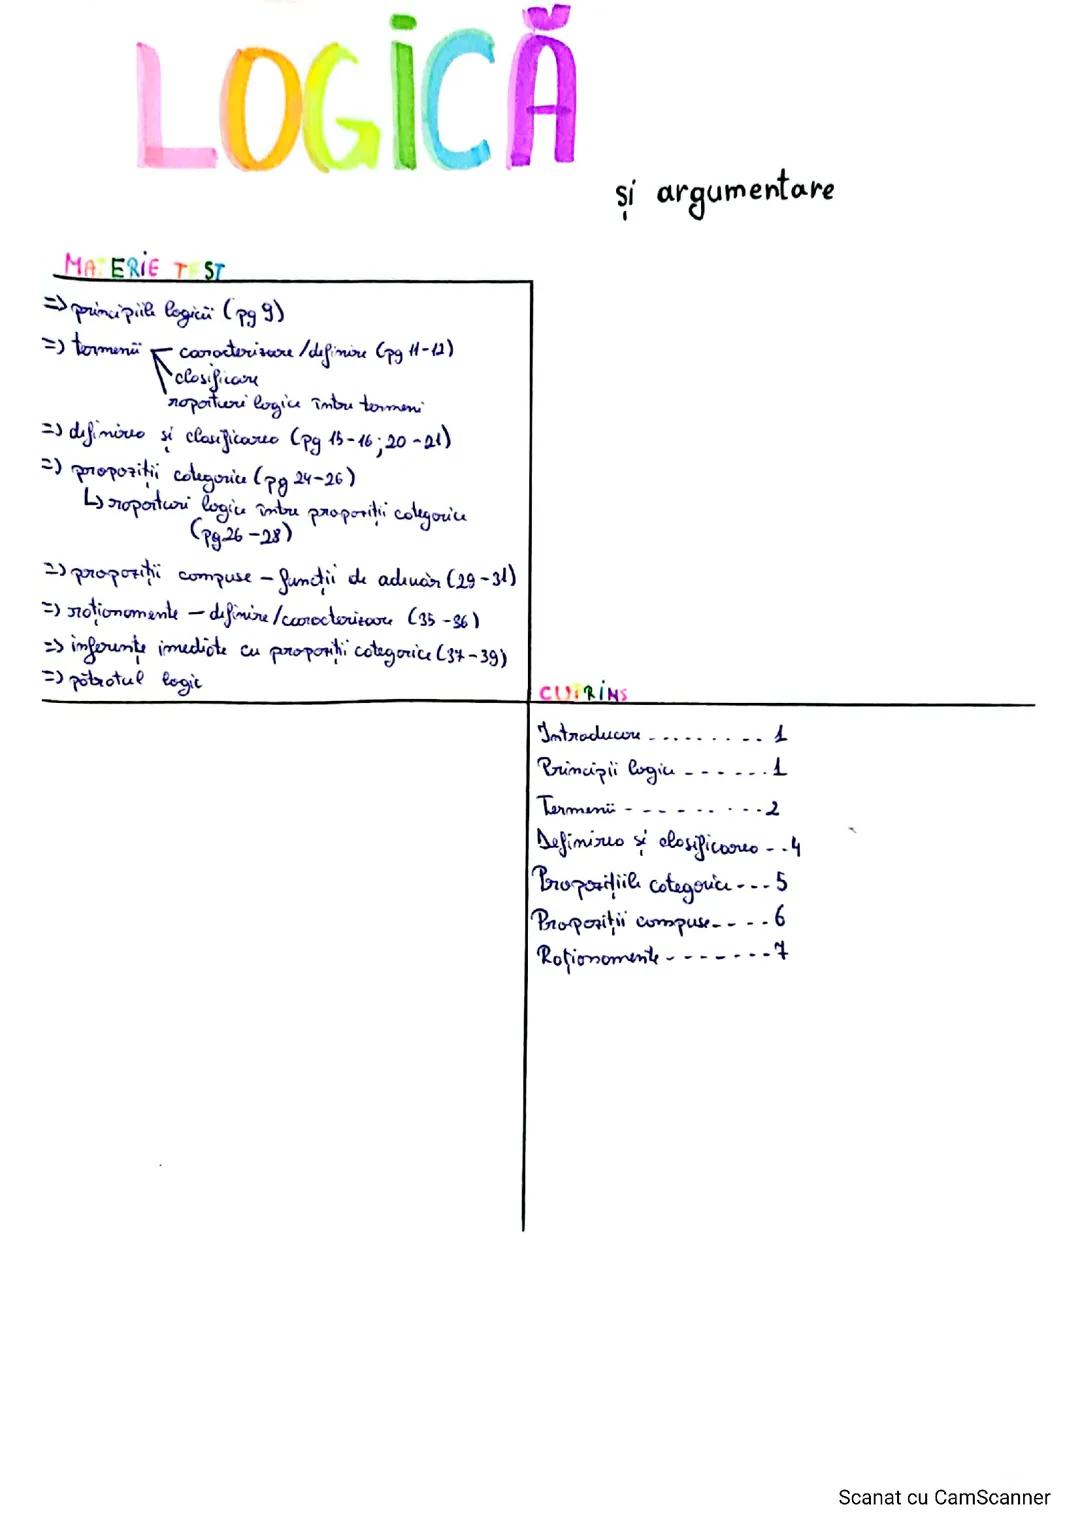 LOGICĂ
și argumentare
MATERIE TEST
=> principiile logicii (pg 9)
=> termenii caracterizare/definire (pg 11-12)
clasificare
raporturi logice între termeni
=> definirea și clasificarea (pg 15-16; 20-21)
=> propoziții categorice (pg 24-26)
↳ raporturi logice între propoziții categorice
(pg 26-28)
=> propoziții compuse - funcții de adevăr (29-31)
=> raționamente - definire/caracterizare (35-36)
=> inferențe imediate cu propoziții categorice (37-39)
=> pătratul logic
CUPRINS
Introducere .......... 1
Principii logice ------. 1
Termenii --------- 2
Definirea și clasificarea -- 4
Propozițiile categorice --- 5
Propoziții compuse ----- 6
Raționamente ------- 7
Scanat cu CamScanner